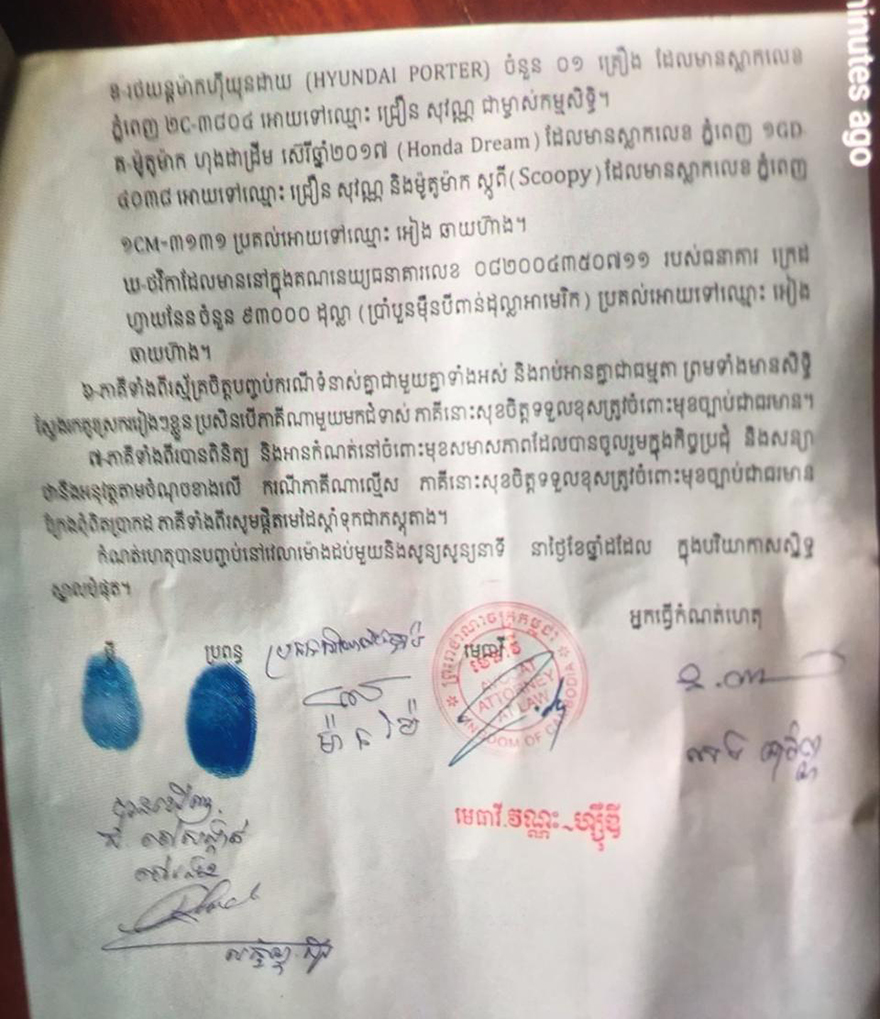 ខ-រថយន្តម៉ាកហ៊ីយុនដាយ (HYUNDAI PORTER) ចំនួន ០១ គ្រឿង ដែលមានស្លាកលេខ
ភ្នំពេញ ២C-៣៨០៤ អោយទៅឈ្មោះ ជ្រឿន សុវណ្ណ ជាម្ចាស់កម្មសិទ្ធិ។
គ-ម៉ូតូម៉ាក ហុងដាឌ្រីម ស៊េរីឆ្នាំ២០១៧ (Honda Dream) ដែលមានស្លាកលេខ ភ្នំពេញ ១GD-
៤០៣៨ អោយទៅឈ្មោះ ជ្រឿន សុវណ្ណ និងម៉ូតូម៉ាក ស្គូពី(Scoopy)ដែលមានស្លាកលេខ ភ្នំពេញ
១CM-៣១៣១ ប្រគល់អោយទៅឈ្មោះ អៀង ឆាយហ៊ាង។
ឃ-ថវិកាដែលមាននៅក្នុងគណនេយ្យធនាគារលេខ ០៨២០០៤៣៥០៧១១ របស់ធនាគារ ក្រេដ
ហ្វាយនែនចំនួន ៩៣០០០ ដុល្លា (ប្រាំបួនម៉ឺនបីពាន់ដុល្លាអាមេរិក) ប្រគល់អោយទៅឈ្មោះ អៀង
ឆាយហ៊ាង។
៦-ភាគីទាំងពីរស្ម័គ្រចិត្តបញ្ចប់ករណីទំនាស់គ្នាជាមួយគ្នាទាំងអស់ និងរាប់អានគ្នាជាធម្មតា ព្រមទាំងមានសិទ្ធិ
ស្វែងរកគូស្រករររៀងៗខ្លួន ប្រសិនបើភាគីណាមួយមកជំទាស់ ភាគីនោះសុខចិត្តទទួលខុសត្រូវចំពោះមុខច្បាប់ជាធរមាន។
៧-ភាគីទាំងពីរបានពិនិត្យ និងអានកំណត់នៅចំពោះមុខសមាសភាពដែលបានចូលរួមក្នុងកិច្ចប្រជុំ និងសន្យា
ថានឹងអនុវត្តតាមចំណុចខាងលើ ករណីភាគីណាល្មើស ភាគីនោះសុខចិត្តទទួលខុសត្រូវចំពោះមុខច្បាប់ជាធរមាន
ក្រែងពុំពិតប្រាកដ ភាគីទាំងពីរសូមផ្តិតមេដៃស្តាំទុកជាភស្តុតាង។
កំណត់ហេតុបានបញ្ចប់នៅវេលាម៉ោងដប់មួយនិងសូន្យសូន្យនាទី នាថ្ងៃខែឆ្នាំដដែល ក្នុងបរិយាកាសស្និទ្ធ
ស្នាលបំផុត។
អ្នកធ្វើកំណត់ហេតុ
ប្តី ប្រពន្ធ មេធាវី
ព្រះរាជាណាចក្រកម្ពុជា
មេធាវី
AVOCAT
ATTORNEY
AT LAW
KINGDOM OF CAMBODIA
ម៉ាន
មេធាវី.វណ្ណៈ
minutes ago